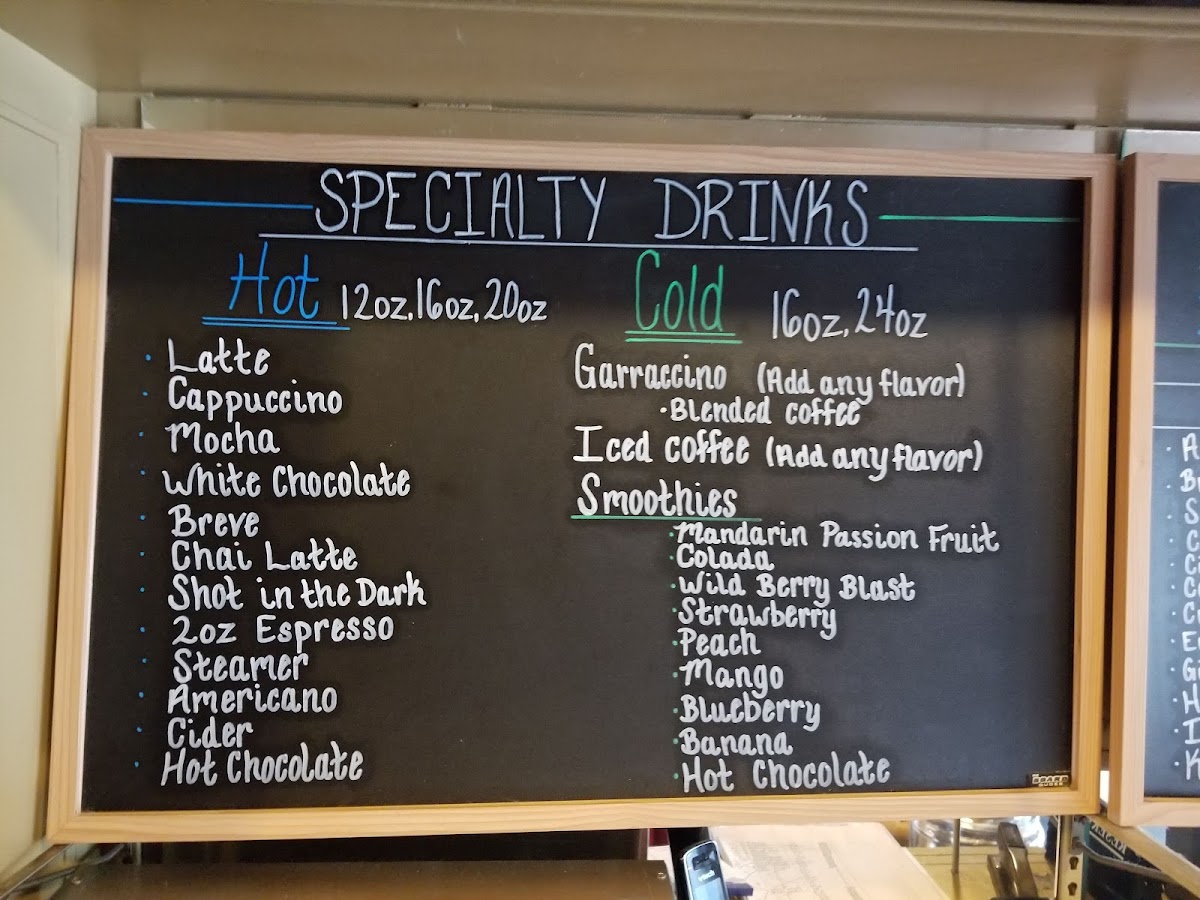 SPECIALTY DRINKS
Hot 12oz, 16oz, 20oz
· Latte
· Cappuccino
· Mocha
· White Chocolate
· Breve
· Chai Latte
· Shot in the Dark
· 2oz Espresso
· Steamer
· Americano
· Cider
· Hot Chocolate
Cold 16oz, 24oz
Garraccino (Add any flavor)
· Blended coffee
Iced coffee (Add any flavor)
Smoothies
· Mandarin Passion Fruit
· Colada
· Wild Berry Blast
· Strawberry
· Peach
· Mango
· Blueberry
· Banana
· Hot Chocolate